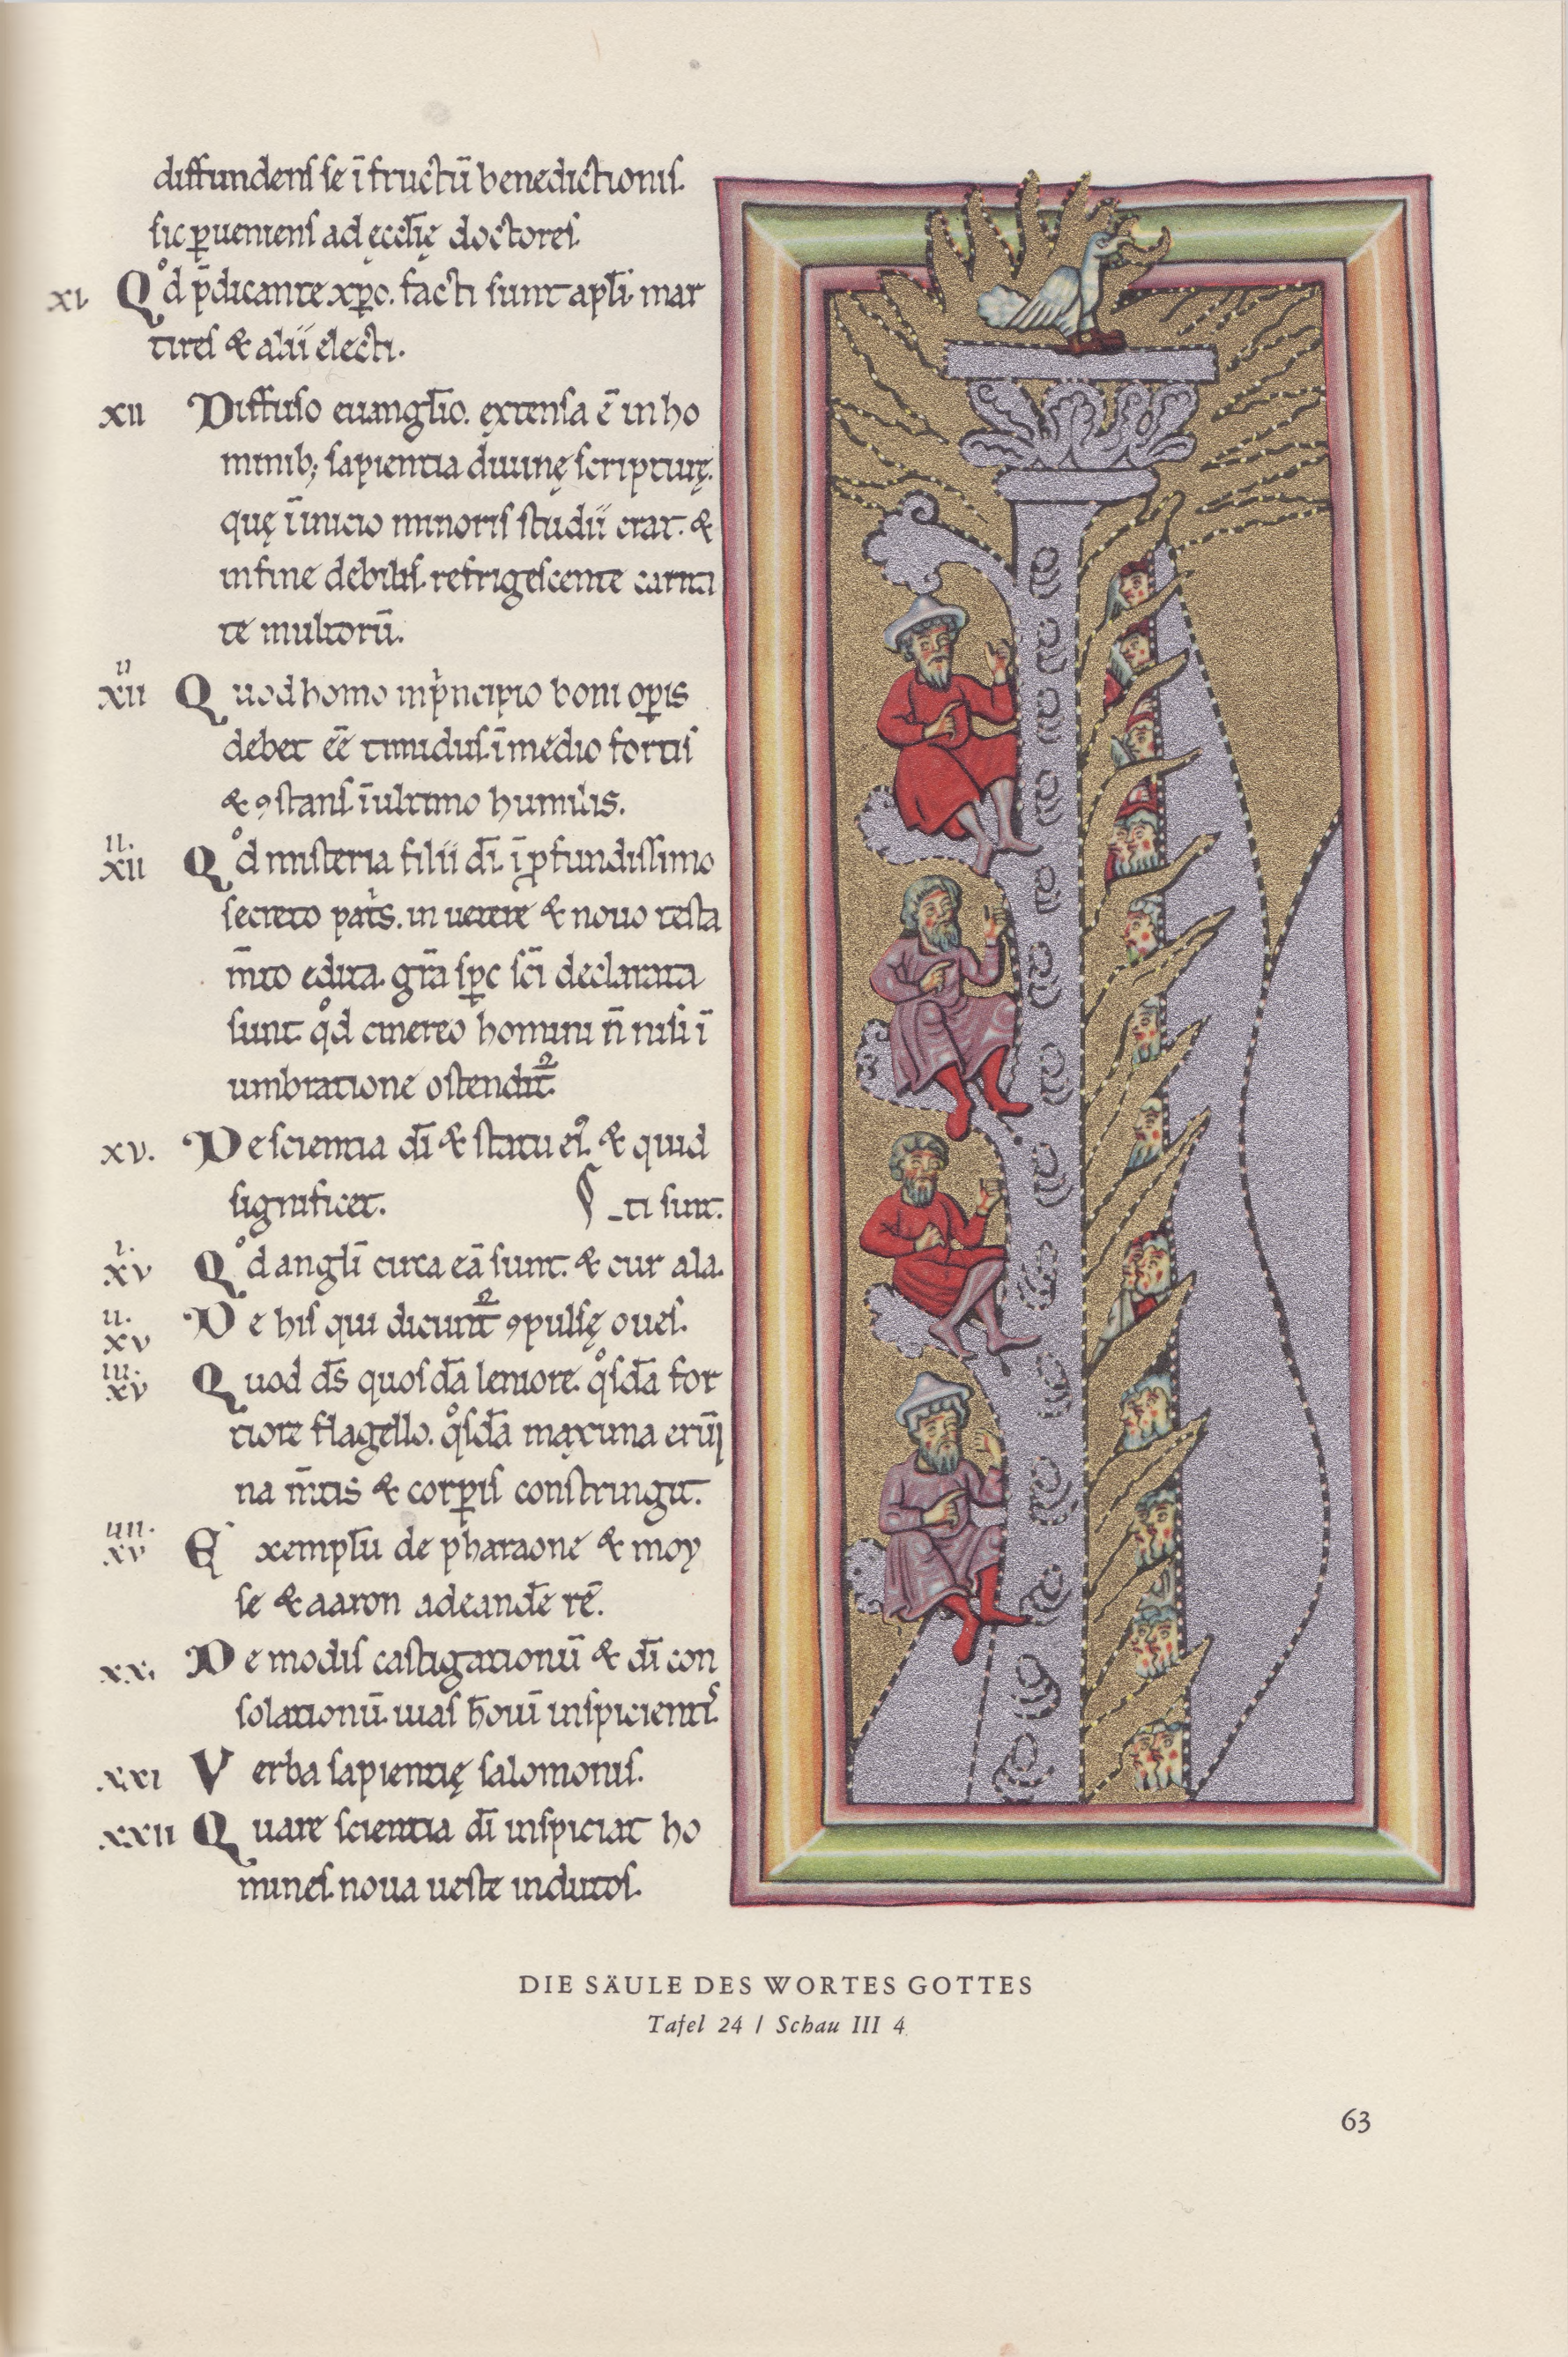 diffundens se ī fructū benedictionis.
sic ꝑueniens ad ęccl̄ię doctores.
XI. Qͦd p̄dicante xp̄o. facti sunt apl̄i mar
tires & alii electi.
XII Diffuso euangl̄io. extensa ē in ho
minib; sapientia diuinę scripturę.
quę ī inicio minoris studii erat. &
in fine debilis. refrigescente carita
te multorū.
XIIII Quod homo in pͥncipio boni oꝑis
debet eē timidus. ī medio fortis
& ꝯstans ī ultimo humilis.
XIIII Qͦd misteria filii dī. ī ꝓfundissimo
secreto patͥs. in uetere & nouo testa
m̄to edita. gr̄a sp̄c sc̄i declarata
sunt qͦd cinereo homini n̄ nisi ī
umbratione ostendit᷑.
XV. De scientia dī & statu eiꝰ. & quid
significet. _ti sunt.
XVI. Qͦd angl̄i circa eā sunt. & cur ala.
XVII. De his qui dicunt᷑ ꝯpulsę oues.
XVIII. Quod ds̄ quosdā leniore. qͦsdā for
tiore flagello. qͦsdā maxima erūp
na m̄tis & corꝑis constringit.
XVIIII. Exempl̄u de pharaone & moy
se & aaron ad eandē rē.
XX. De modis castigationū & dī con
solationū. uias h̄oīuī inspicientis
XXI Verba sapientię salomonis.
XXII Quare scientia dī inspiciat ho
mines. noua ueste indutos.
DIE SÄULE DES WORTES GOTTES
Tafel 24 / Schau III 4
63